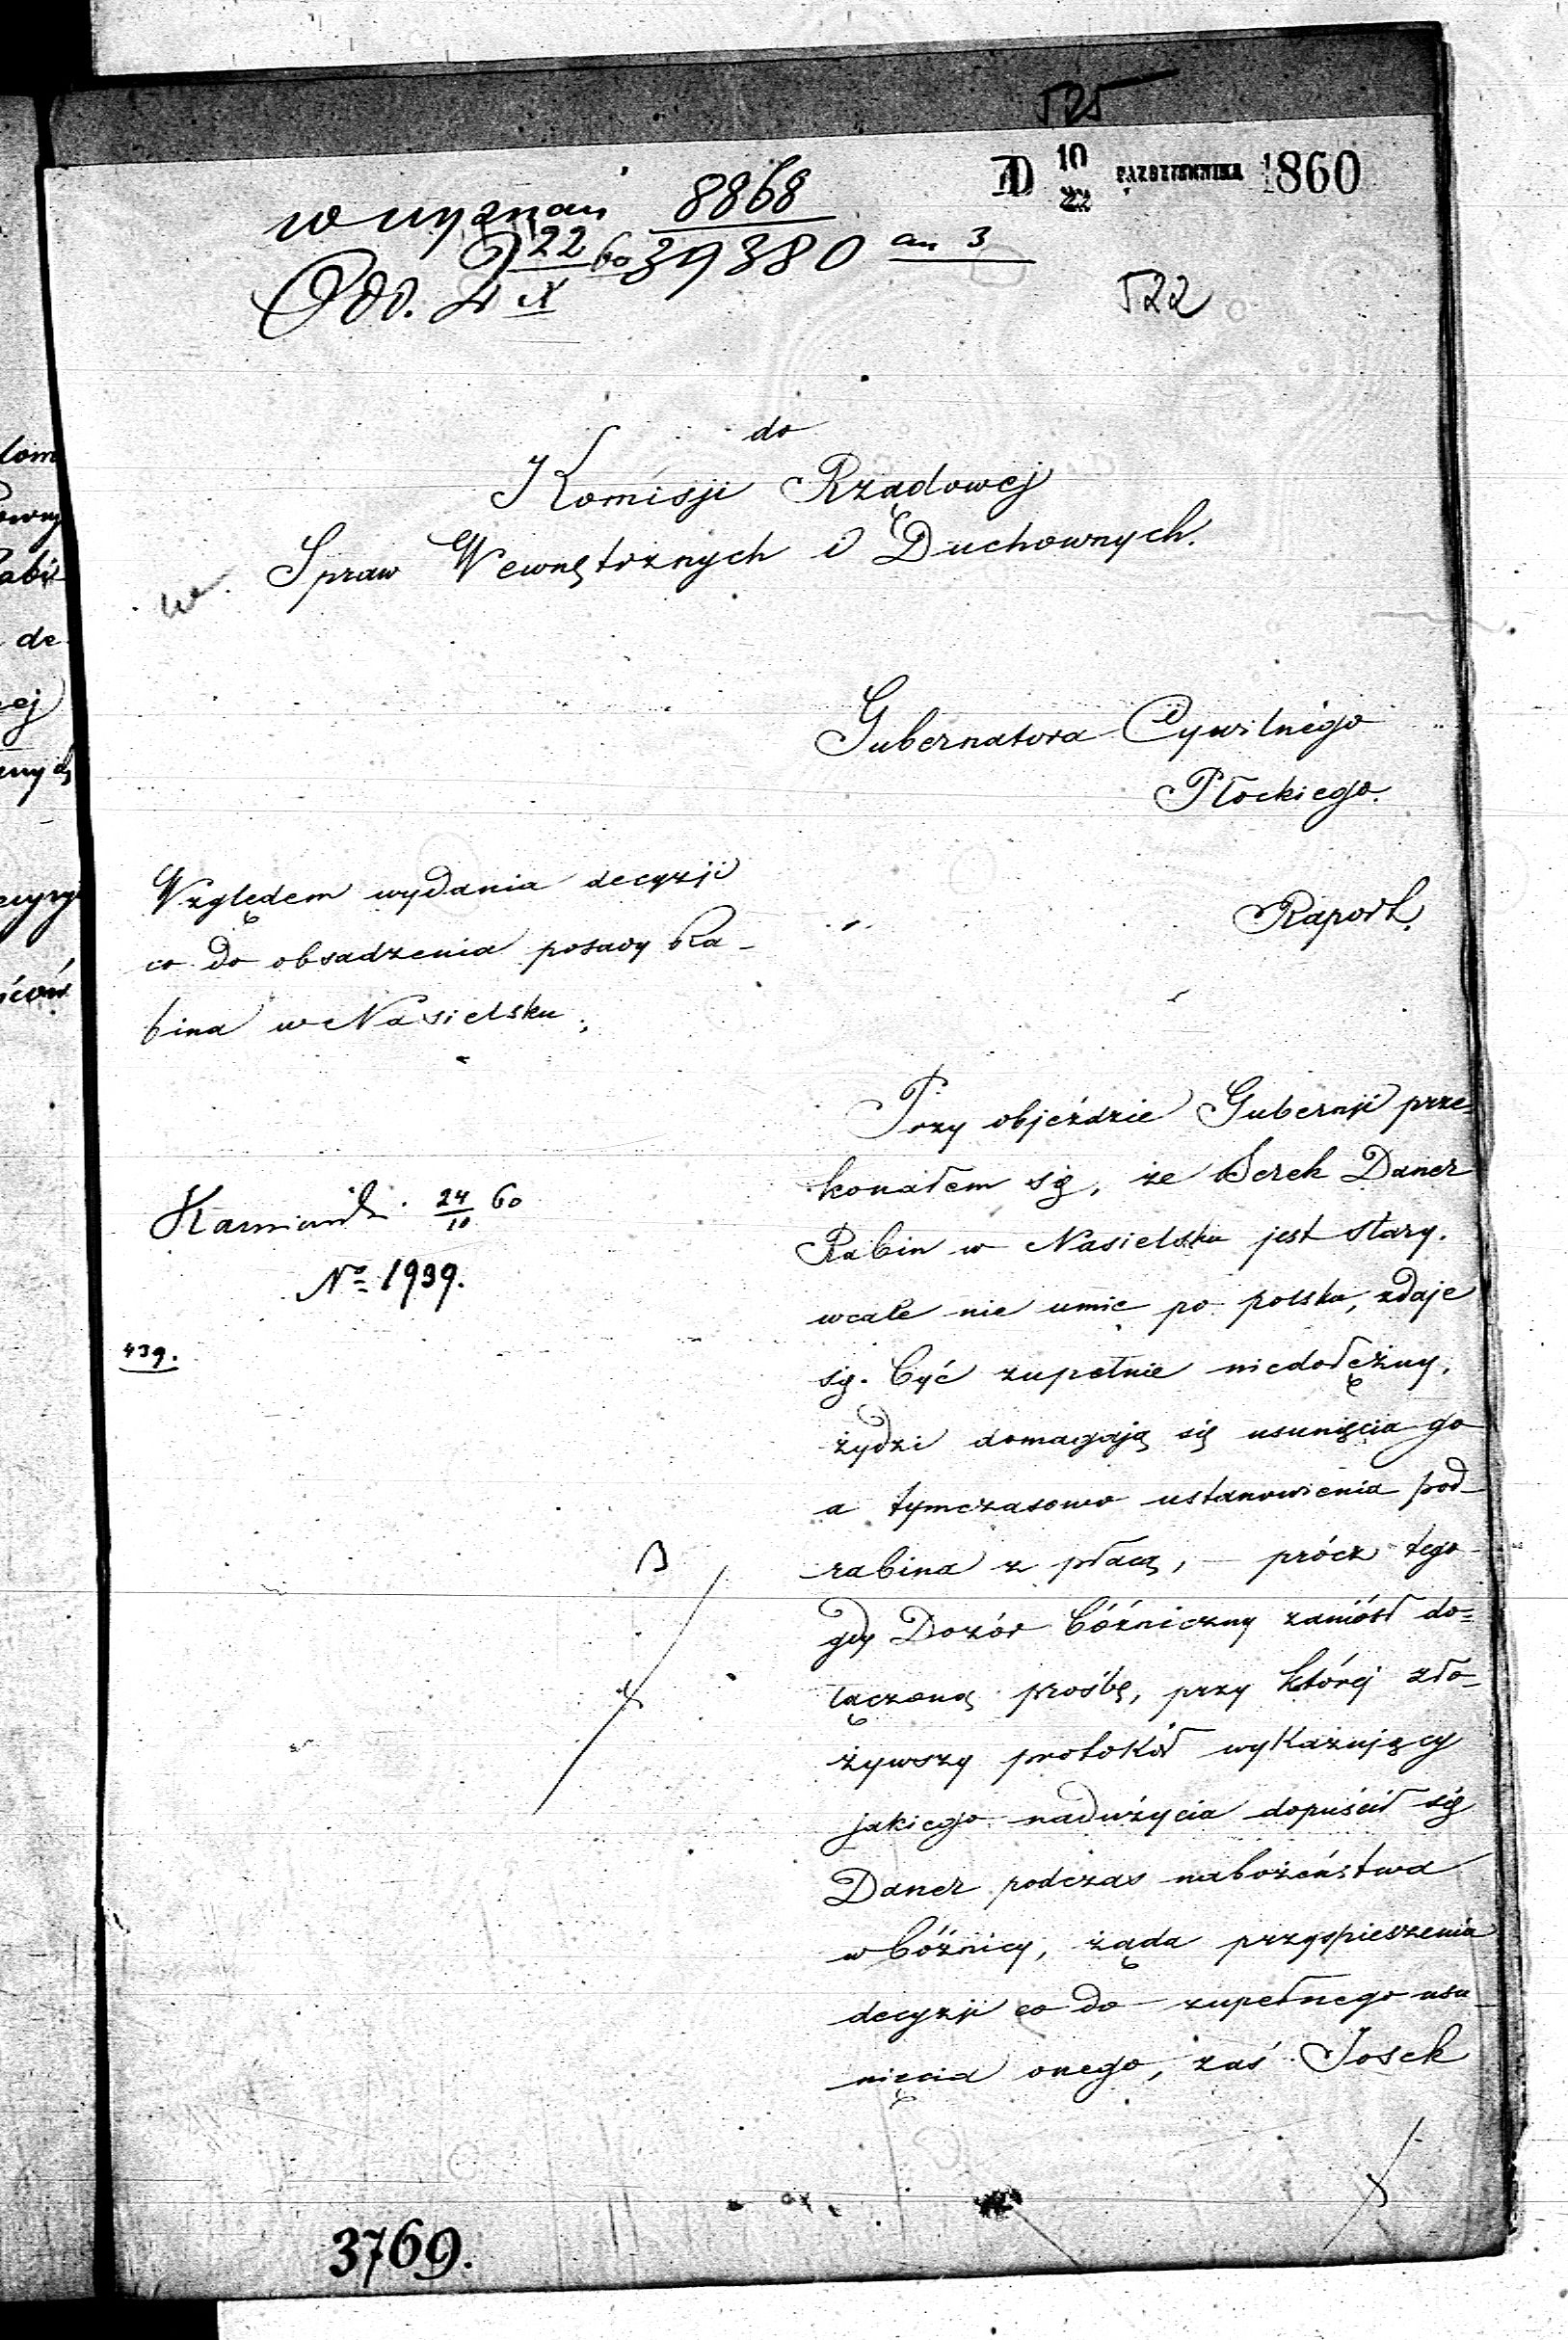 525
D 10/22 PAŹDZIERNIKA 1860
wyznań 8868
Odd. 2 22/X 60 39380 an 3
522
do
Komisji Rządowej
Spraw Wewnętrznych i Duchownych.
Gubernatora Cywilnego
Płockiego.
Raport.
Względem wydania decyzji
co do obsadzenia posady Ra-
bina w Nasielsku.
24/10 60
No 1939.
439.
Przy objeździe Gubernji prze-
konałem się, że Berek Daner
Rabin w Nasielsku jest stary.
wcale nie umie po polsku, zdaje
się być zupełnie niedołężny,
żydzi domagają się usunięcia go
a tymczasowo ustanowienia pod-
rabina z płacą, – prócz tego
gdy Dozór bóźniczny zaniósł do-
łączoną prośbę, przy której zło-
żywszy protokół wykazujący
jakiego nadużycia dopuścił się
Daner podczas nabożeństwa
w bóżnicy, żąda przyspieszenia
decyzji co do zupełnego usu-
nięcia onego, zaś Josek
3769.